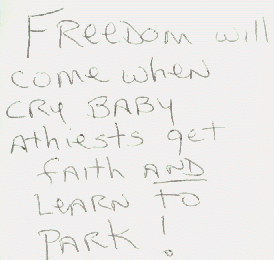 FReeDom will
come when
CRY BABY
Athiests get
faith AND
LeaRN TO
PARK!